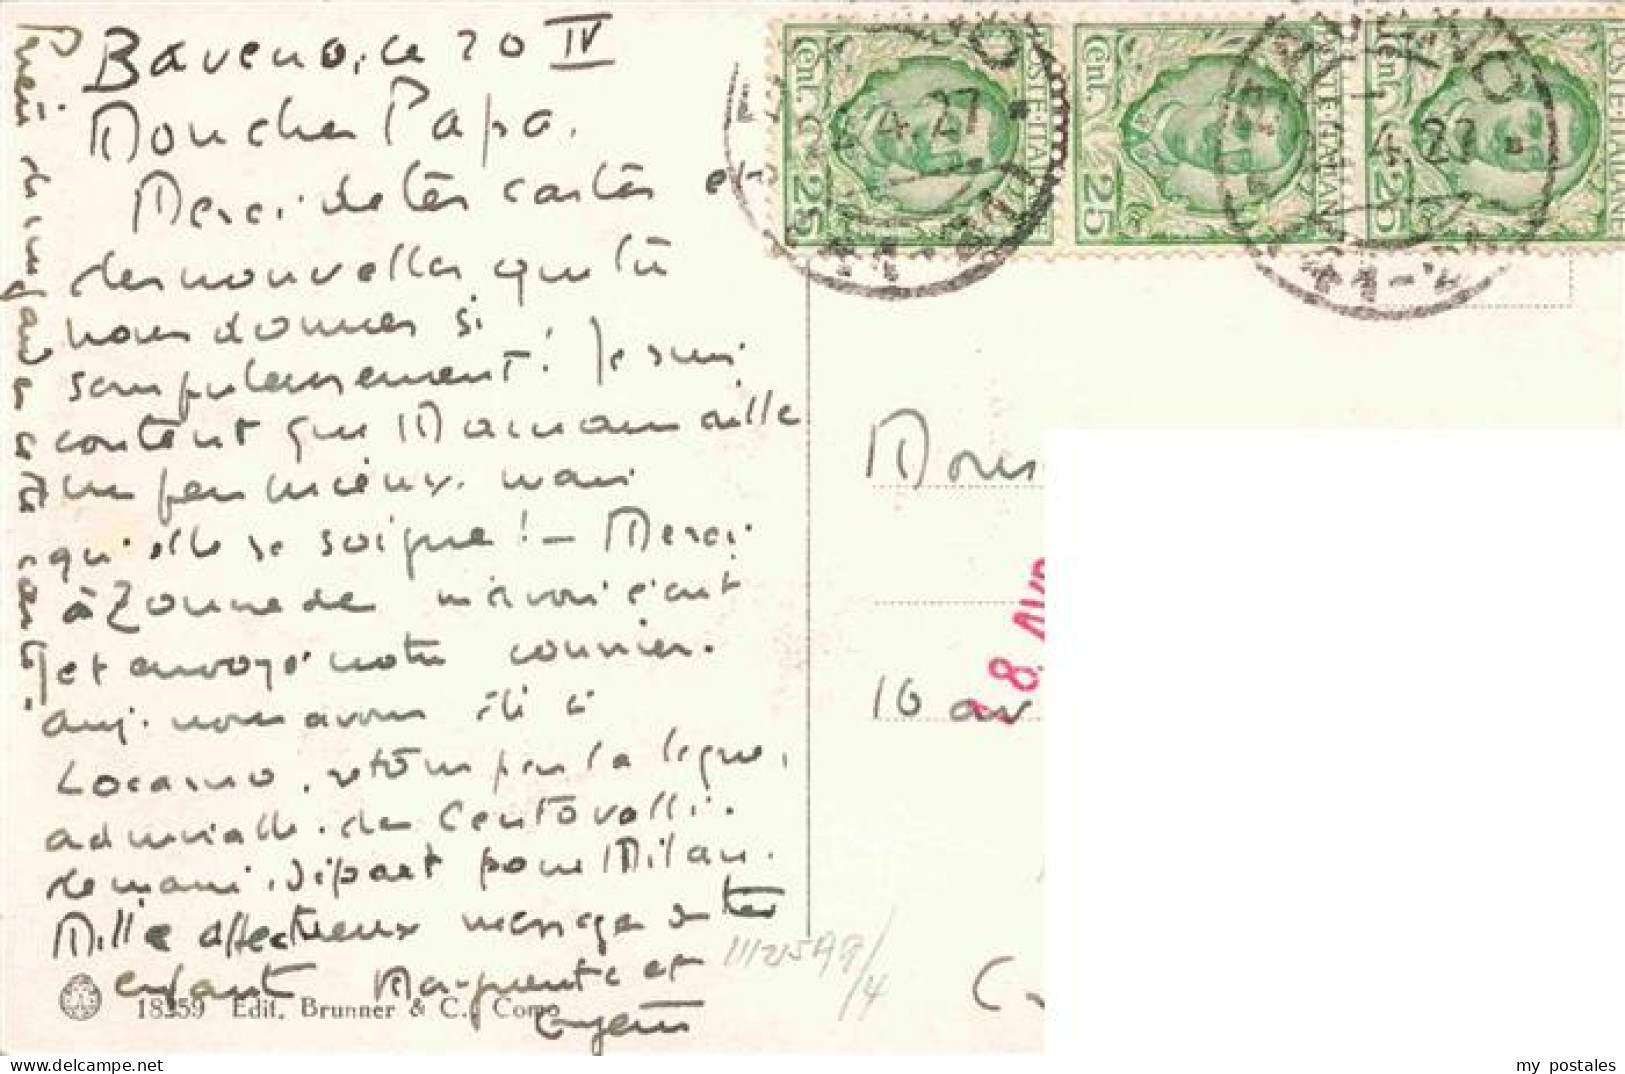 Baveno, ce 20 IV
Mon cher Papa.
Merci de tes cartes et
des nouvelles que tu
nous donnes si
scrupuleusement! Je suis
content que Maman aille
un peu mieux. mais
qu'elle se soigne! - Merci
à Zonne de m'avoir écrit
et envoyé notre courrier.
auj. nous avons été à
Locarno, retour par la ligne,
admirable. des Centovalli.
demain. départ pour Milan.
Mille affectueux messages de tes
enfants Marguerite et
Prière de me garder cette carte.
18359 Edit. Brunner & C., Como
Cent. 25
POSTE ITALIANE
Cent. 25
POSTE ITALIANE
Cent. 25
POSTE ITALIANE
4.27
4.27
Mons
18. AVR
10 av
my postales